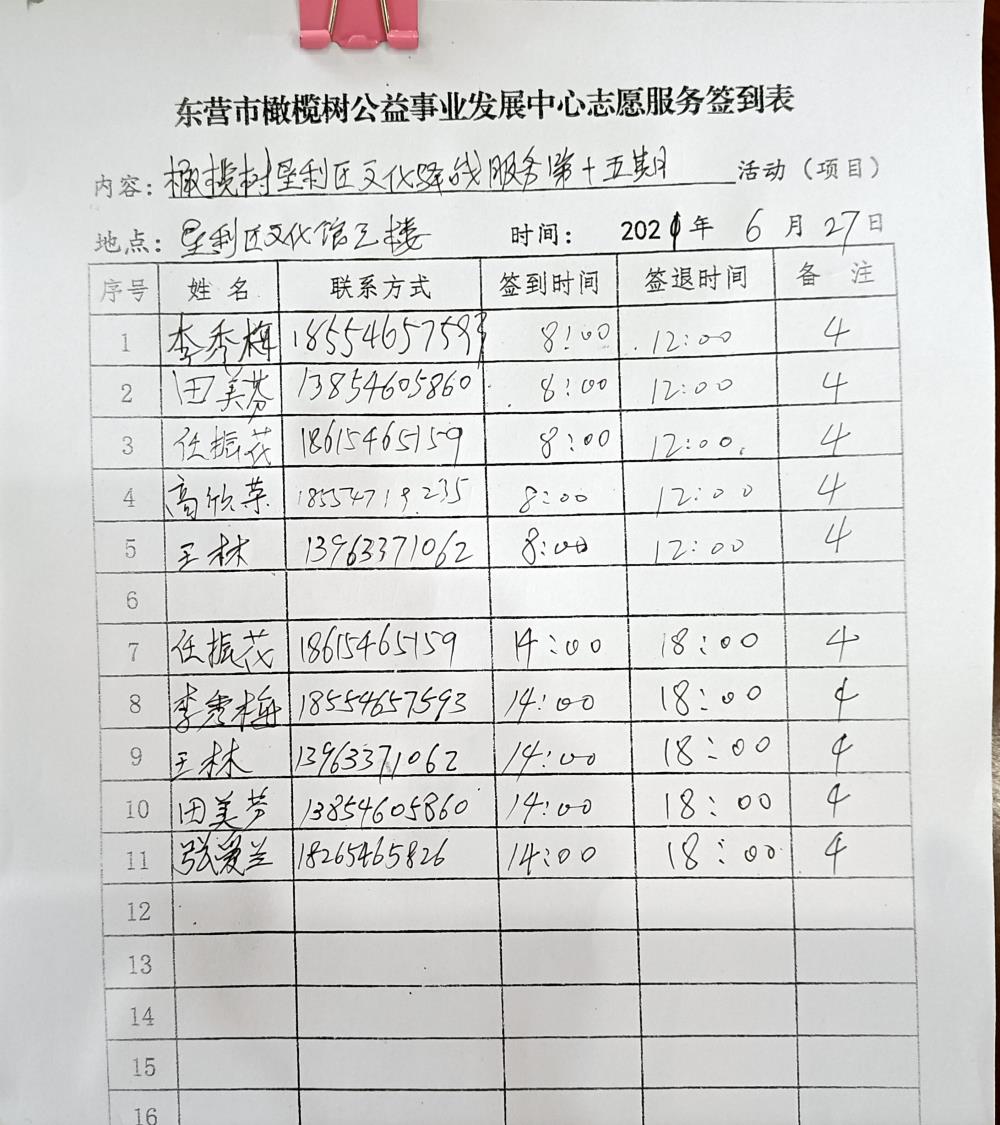 东营市橄榄树公益事业发展中心志愿服务签到表
内容：橄榄树垦利区文化驿站服务第十五期 活动（项目）
地点：垦利区文化馆三楼 时间：2021年 6 月 27 日
序号 姓名 联系方式 签到时间 签退时间 备注
1 李秀梅 18554657593 8:00 12:00 4
2 田美芬 13854605860 8:00 12:00 4
3 任振花 18615465159 8:00 12:00 4
4 高欣荣 18554719235 8:00 12:00 4
5 王林 13963371062 8:00 12:00 4
6
7 任振花 18615465159 14:00 18:00 4
8 李秀梅 18554657593 14:00 18:00 4
9 王林 13963371062 14:00 18:00 4
10 田美芳 13854605860 14:00 18:00 4
11 张爱兰 18265465826 14:00 18:00 4
12
13
14
15
16